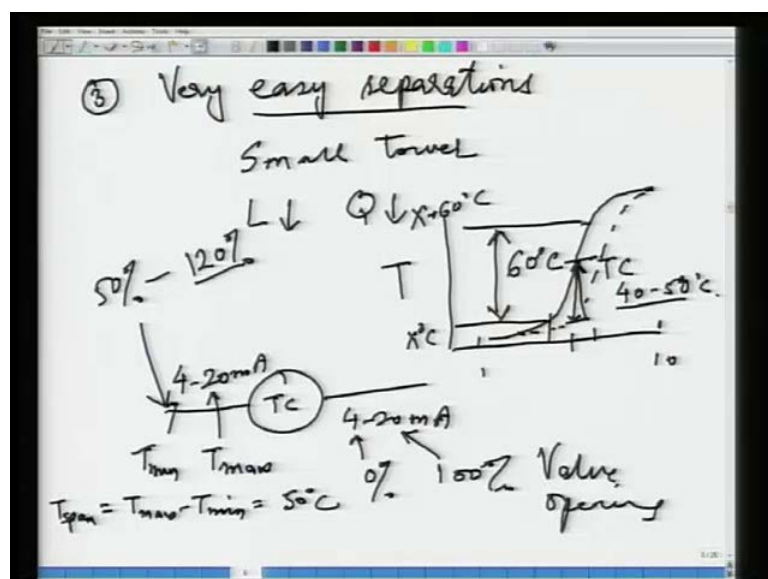 ③ Very easy separations
Small Tower
L ↓ Q ↓
50% - 120%
X+60°C
T
60°C
TC
40-50°C
X°C
1 10
4-20mA
TC
4-20mA
Tmin Tmax
0% 100% Valve opening
Tspan = Tmax - Tmin = 50°C